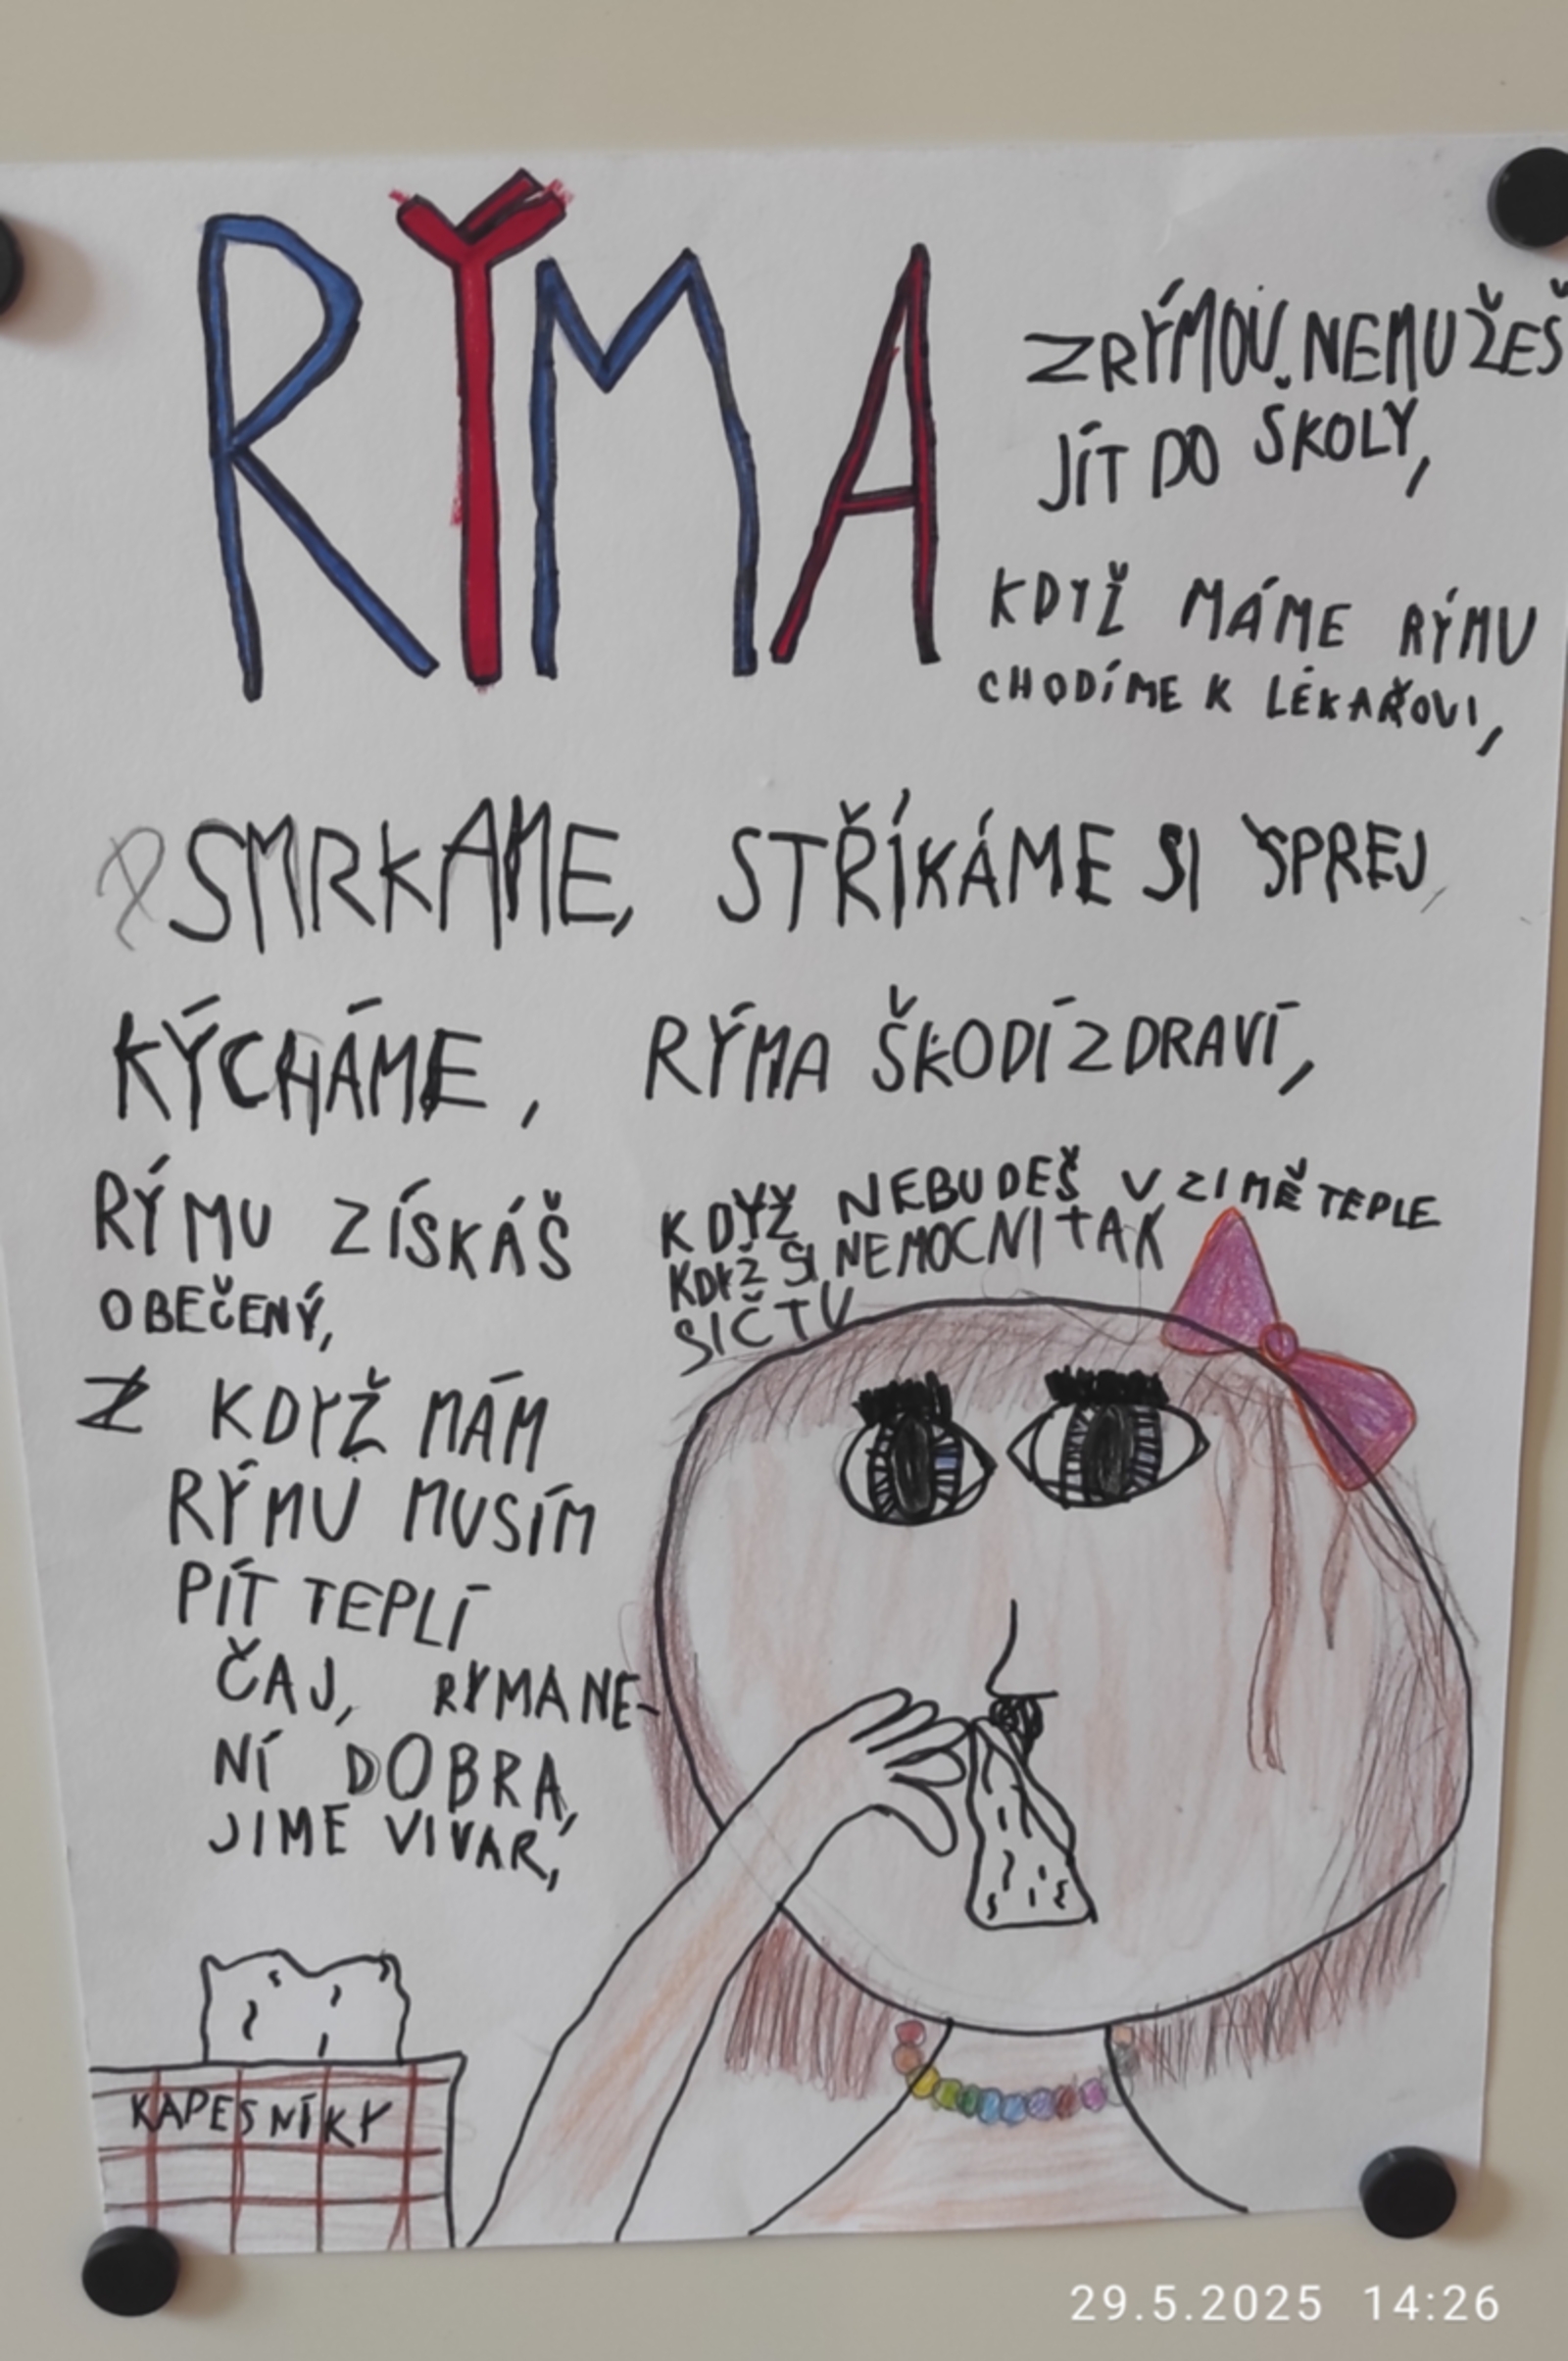 RÝMA
Z RÝMOU NEMUŽEŠ
JÍT DO ŠKOLY,
KDYŽ MÁME RÝMU
CHODÍME K LÉKAŘOVI,
SMRKAME, STŘÍKÁME SI SPREJ,
KÝCHÁME, RÝMA ŠKODÍ ZDRAVÍ,
RÝMU ZÍSKÁŠ
OBEČENÝ,
KDYŽ NEBUDEŠ V ZIMĚ TEPLE
KDYŽ SI NEMOCNI TAK
SI ČTU
KDYŽ MÁM
RÝMU MUSÍM
PÍT TEPLÍ
ČAJ, RYMA NE-
NÍ DOBRA,
JIME VIVAR,
KAPESNÍKY
29.5.2025 14:26